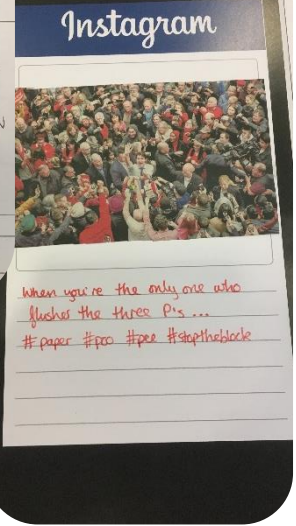 Instagram
When you're the only one who
flushes the three P's ...
#paper #poo #pee #stoptheblock